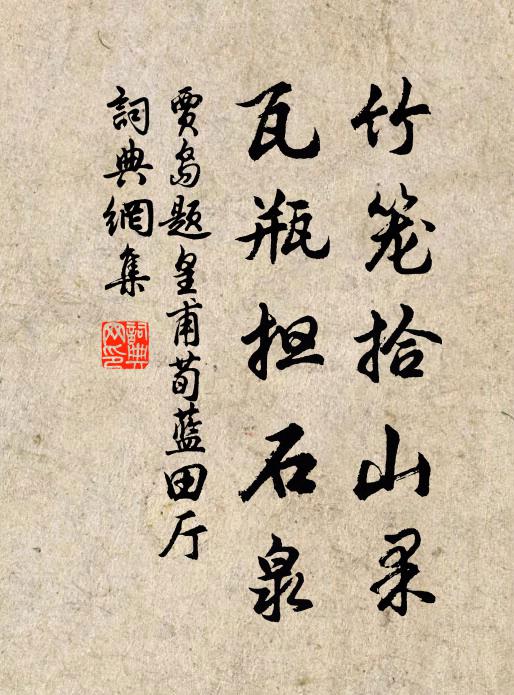 竹笼拾山果
瓦瓶担石泉
贾岛题皇甫荀蓝田厅
詞典網集
詞典網印